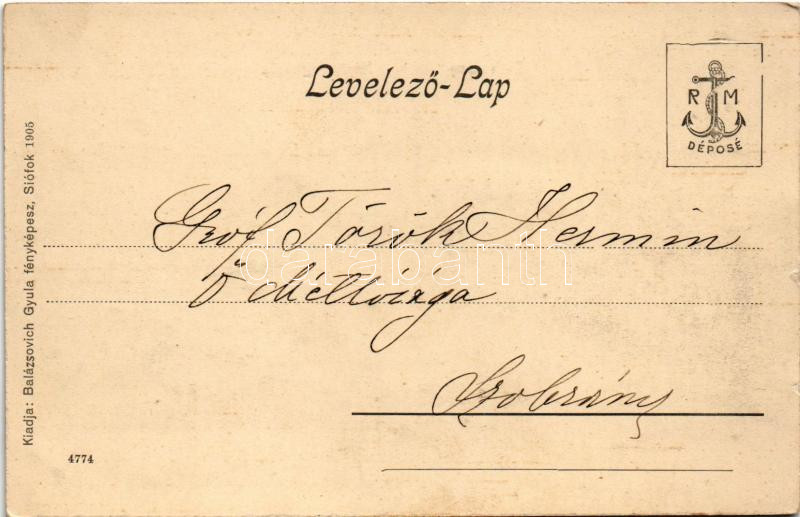 Levelező-Lap
R M
DÉPOSÉ
Gróf Török Hermin
Ő Méltósága
Szobráncz
Kiadja: Balázsovich Gyula fényképesz, Siófok 1905
4774
darabanth